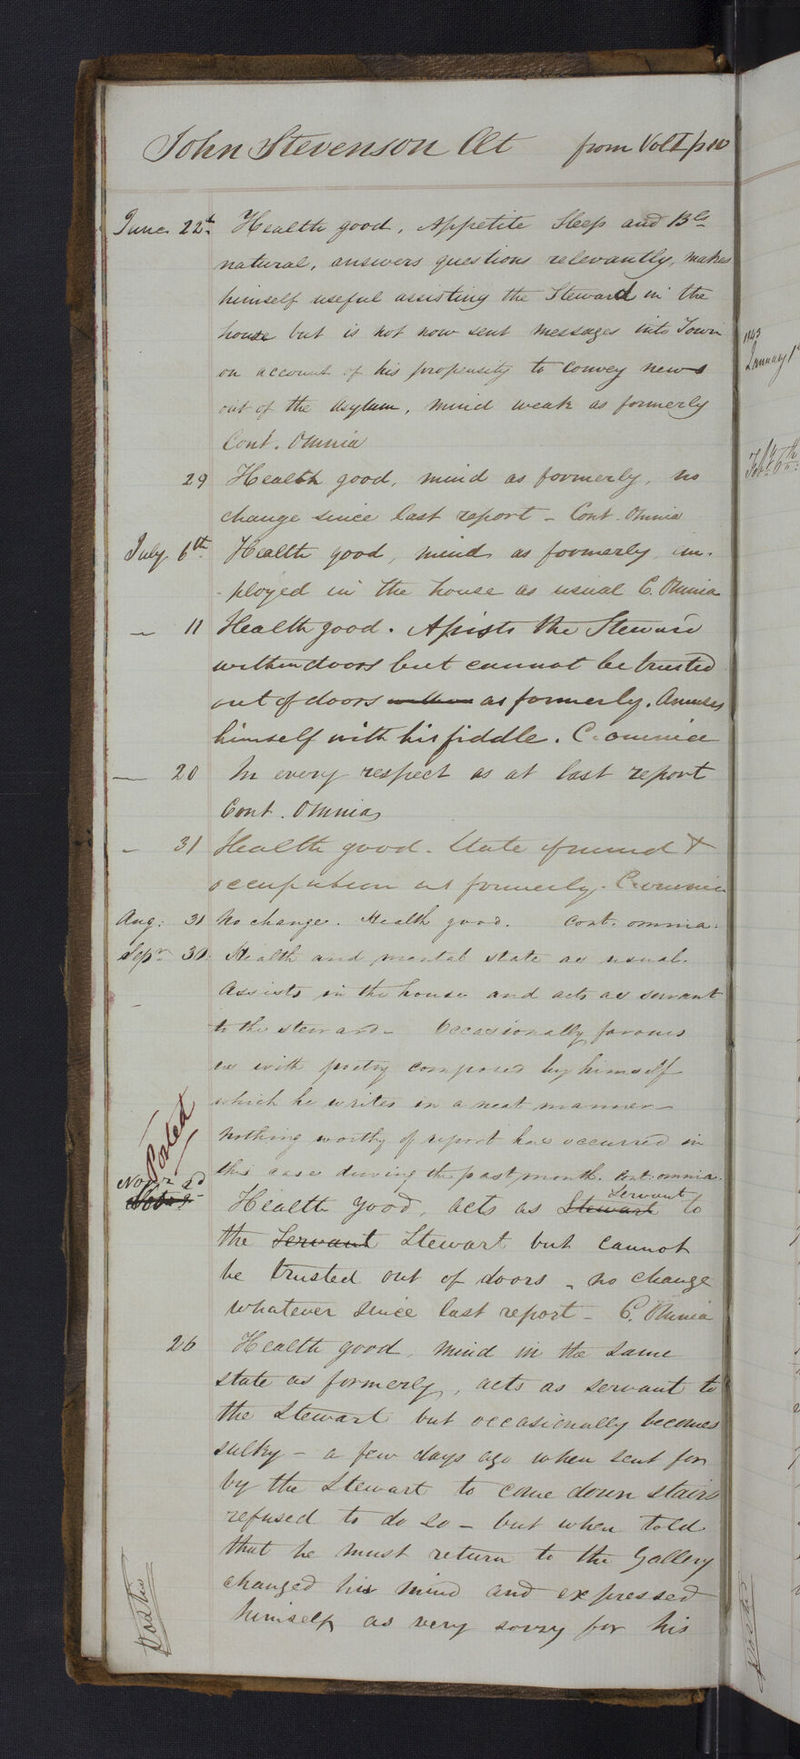 John Stevenson Æt from Vol I p 10
June 22d. Health good, Appetite Sleep and Bls
natural, answers questions relevantly, makes
himself useful assisting the Steward in the
house but is not now sent messages into Town
on account of his propensity to convey news
out of the Asylum, mind weak as formerly
Cont. Omnia
29 Health good, mind as formerly, no
change since last report - Cont. Omnia
July 6th. Health good, mind as formerly, im-
-ployed in the house as usual C. Omnia
— 11 Health good. Assists the Steward
within doors but cannot be trusted
out of doors as formerly. Amuses
himself with his fiddle. C. omnia
— 20 In every respect as at last report
Cont. Omnia
— 31 Health good. State of mind &
occupation as formerly. C. omnia
Aug: 31 No change. Health good. Cont. omnia.
Sepr 30. Health and mental state as usual.
Assists in the house and acts as servant
to the steward - Occasionally favours
us with poetry composed by himself
which he writes in a neat manner -
Nothing worthy of report has occurred in
this case during the past month. Cont. omnia.
Posted
Novr 2d
Servant
Health good, acts as Stewart to
the Servant Stewart but cannot
be trusted out of doors - no change
whatever since last report - C. Omnia
26 Health good, mind in the same
state as formerly, acts as servant to
the Stewart but occasionally becomes
sulky - a few days ago when sent for
by the Stewart to come down stairs
refused to do so - but when told
that he must return to the Gallery
changed his mind and expressed
himself as very sorry for his
Posted
1843
January 1st